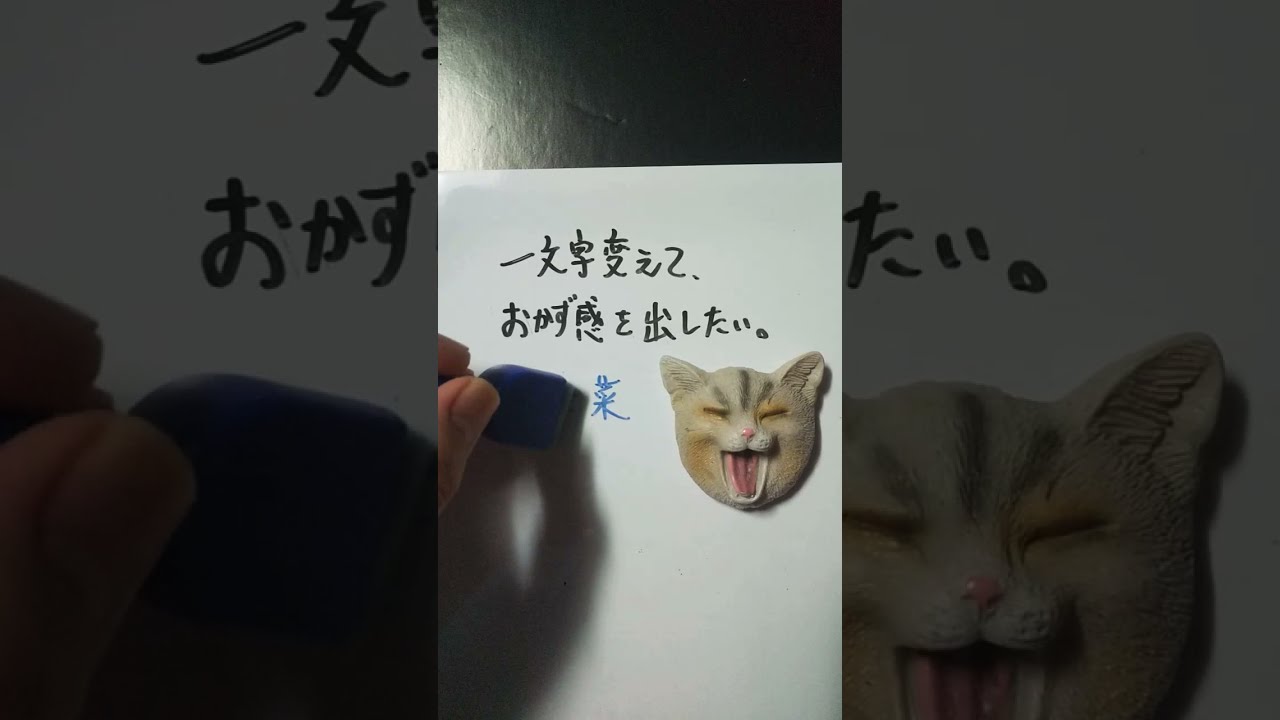 一文字変えて、
おかず感を出したい。
菜